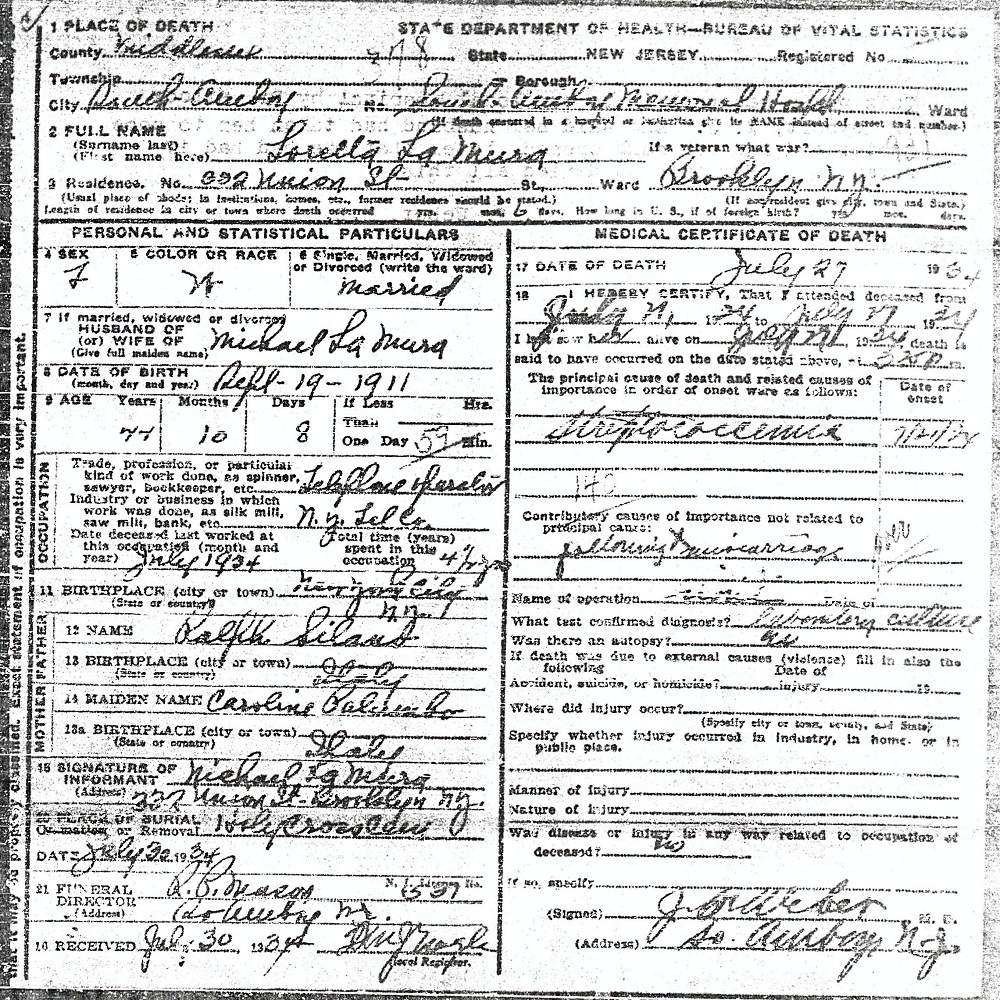 1 PLACE OF DEATH
STATE DEPARTMENT OF HEALTH—BUREAU OF VITAL STATISTICS
County Middlesex State NEW JERSEY Registered No.
Township Borough
City South Amboy No. South Amboy Memorial Hospital Ward
(If death occurred in a hospital or institution give its NAME instead of street and number.)
2 FULL NAME
(Surname last)
(First name here) Loretta La Mura If a veteran what war?
3 Residence. No. 332 Union St St., Ward Brooklyn N.Y.
(Usual place of abode; in institutions, homes, etc., former residence should be stated.) (If nonresident give city, town and State.)
Length of residence in city or town where death occurred yrs. mos. 6 days. How long in U. S., if of foreign birth? yrs. mos. days.
PERSONAL AND STATISTICAL PARTICULARS
4 SEX 5 COLOR OR RACE 6 Single, Married, Widowed
or Divorced (write the word)
F W Married
7 If married, widowed or divorced
HUSBAND OF
(or) WIFE OF Michael La Mura
(Give full maiden name)
8 DATE OF BIRTH
(month, day and year) Sept-19-1911
9 AGE Years Months Days If Less Hrs.
Than
10 8 One Day Min.
OCCUPATION
Trade, profession, or particular
kind of work done, as spinner,
sawyer, bookkeeper, etc. Telephone Operator
Industry or business in which
work was done, as silk mill,
saw mill, bank, etc. N.Y. Tel Co.
Date deceased last worked at Total time (years)
this occupation (month and spent in this
year) July 1934 occupation 4½ yrs
11 BIRTHPLACE (city or town) New York City
(State or country) N.Y.
FATHER
12 NAME Ralph Silano
13 BIRTHPLACE (city or town)
(State or country) Italy
MOTHER
14 MAIDEN NAME Caroline Palumbo
13a BIRTHPLACE (city or town)
(State or country) Italy
15 SIGNATURE OF
INFORMANT Michael La Mura
(Address) 332 Union St-Brooklyn N.Y.
PLACE OF BURIAL
Cremation or Removal Holy Cross Cem
DATE July 30 1934
21 FUNERAL
DIRECTOR
(Address) So Amboy N.J.
N. J. License No.
16 RECEIVED July 30 1934
Local Registrar.
MEDICAL CERTIFICATE OF DEATH
17 DATE OF DEATH July 27 1934
18 I HEREBY CERTIFY, That I attended deceased from
July 1934 to July 27 1934
I last saw her alive on July 1934 death is
said to have occurred on the date stated above, at m.
The principal cause of death and related causes of
importance in order of onset were as follows:
Date of
onset
Streptococcemia
140
Contributory causes of importance not related to
principal cause:
following miscarriage
Name of operation Date of
What test confirmed diagnosis? laboratory culture
Was there an autopsy?
If death was due to external causes (violence) fill in also the
following Date of
Accident, suicide, or homicide? injury 19
Where did injury occur?
(Specify city or town, county, and State)
Specify whether injury occurred in industry, in home, or in
public place.
Manner of injury
Nature of injury
Was disease or injury in any way related to occupation of
deceased? no
If so, specify
(Signed) J. W. Weber M. D.
(Address) So. Amboy, N.J.